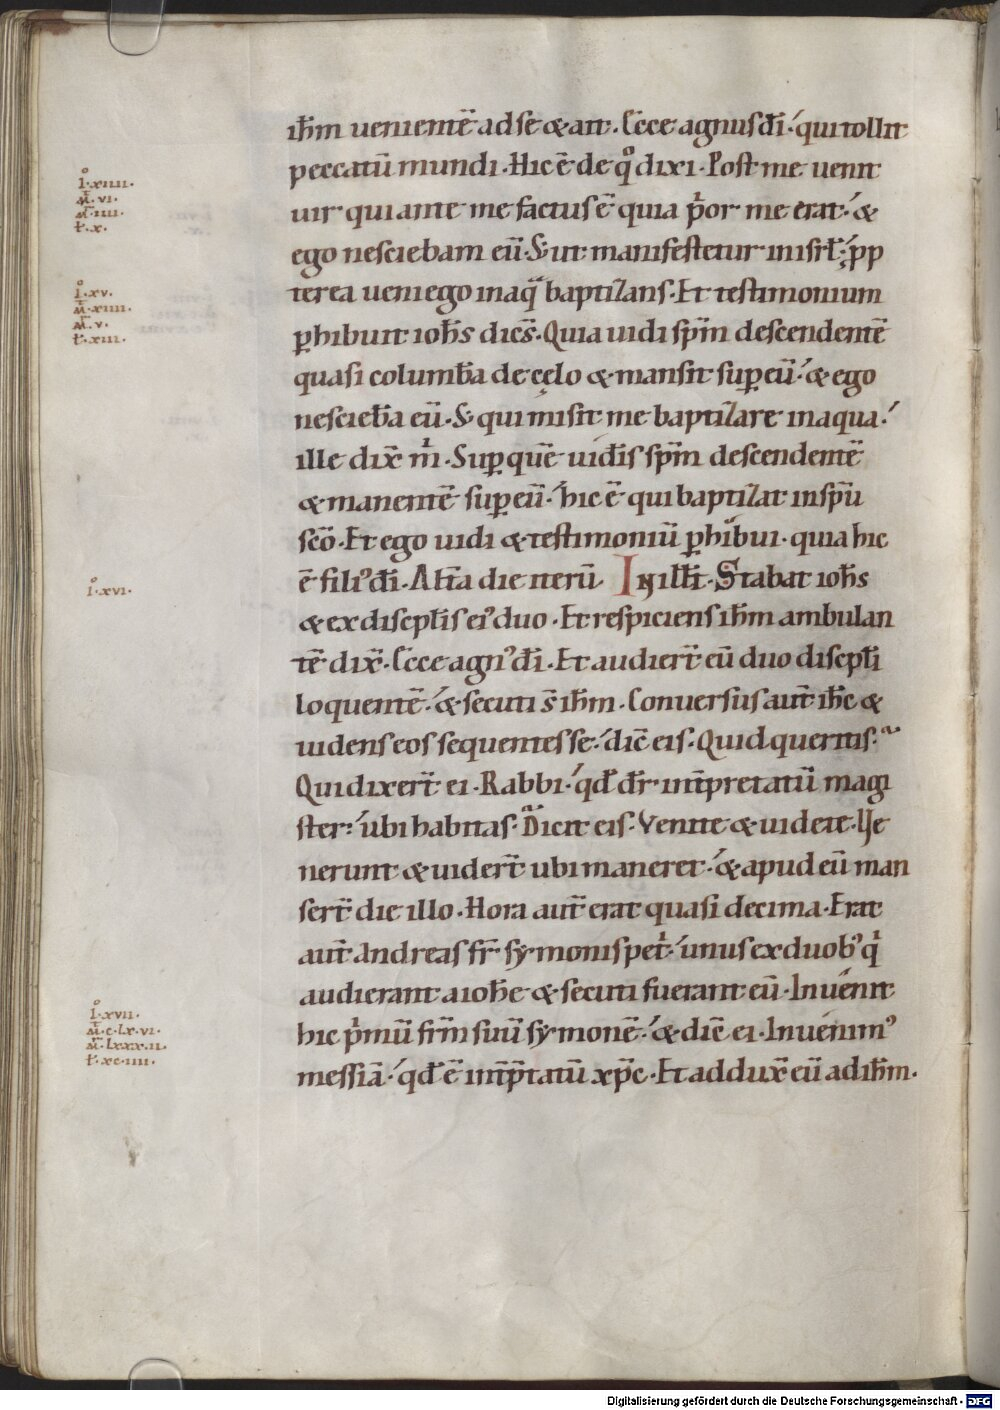 ih̅m uenientē ad se & ait. Ecce agnus d̅i. qui tollit
peccatū mundi. Hic ē de qͦ dixi. Post me uenit
uir qui ante me factus ē quia pⁱor me erat. &
ego nesciebam eū. S; ut manifestetur in isrł. ꝓp
terea ueni ego in aqᵃ baptizans. Et testimonium
ꝑhibuit ioh̅s dicēs. Quia uidi sp̅m descendentē
quasi columb̅a de cęlo & mansit suꝑ eū. & ego
nescieb̅a eū. S; qui misit me baptizare in aqua.
ille dix̅ mⁱ. Suꝑ quē uid̅is sp̅m descendentē
& manentē suꝑ eū. hic ē qui baptizat in sp̅u
sc̅o. Et ego uidi & testimoniū ꝑhibui. quia hic
ē filiꝰ d̅i. Alt̅a die iterū In ill̅i. Stabat ioh̅s
& ex discipł̅is eiꝰ duo. Et respiciens ih̅m ambulan
tē dix̅. Ecce agnꝰ d̅i. Et audier̅t eū duo discipł̅i
loquentē. & secuti s̅ ih̅m. Conuersus aut̅ ih̅c &
uidens eos sequentes se. dic̅ eis. Quid queritis.
Qui dixer̅t ei. Rabbi. qd̅ d̅r int̅pretatū magi
ster. ubi habitas. Dicit eis. Venite & uidete. Ue
nerunt & uider̅t ubi maneret. & apud eū man
ser̅t die illo. Hora aut̅ erat quasi decima. Erat
aut̅ Andreas fr̅ symonis petⁱ. unus ex duobꝰ qⁱ
audierant a ioh̅e & secuti fuerant eū. Inuenit
hic pⁱmū fr̅m suū symonē. & dic̅ ei. Inuenimꝰ
messiā. qd̅ ē int̅p̅tatū xp̅c. Et addux̅ eū ad ih̅m.
I͛. xiiii.
M̅. vi.
M̅. iiii.
Ł. x.
I͛. xv.
M̅. xiiii.
M̅. v.
Ł. xiii.
I͛. xvi.
I͛. xvii.
M̅. c. lx. vi.
M̅. lxxx. ii.
Ł. xc. iiii.
Digitalisierung gefördert durch die Deutsche Forschungsgemeinschaft - DFG